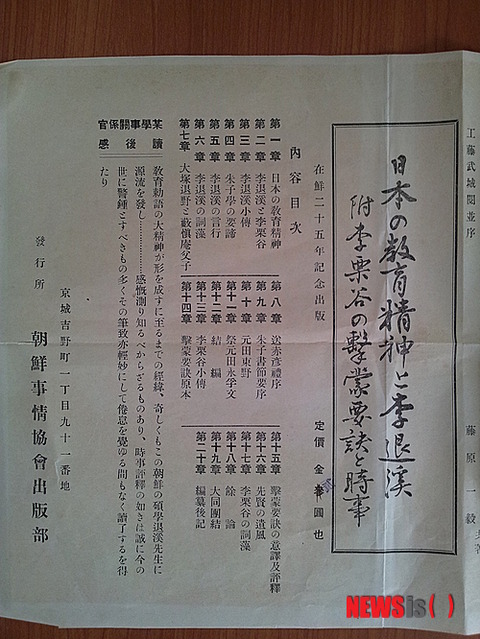 工藤武城閲並序
日本の教育精神と李退溪
附李栗谷の擊蒙要訣と時事
藤原一毅
在鮮二十五年記念出版
定價金壹圓也
內容目次
第一章 日本の教育精神
第二章 李退溪と李栗谷
第三章 李退溪小傳
第四章 朱子學の要諦
第五章 李退溪の言行
第六章 李退溪の詞藻
第七章 大塚退野と藪愼庵父子
第八章 送赤彥禮序
第九章 朱子書節要序
第十章 元田東野
第十一章 祭元田永孚文
第十二章 結編
第十三章 李栗谷小傳
第十四章 擊蒙要訣原本
第十五章 擊蒙要訣の意譯及評釋
第十六章 先賢の遺風
第十七章 李栗谷の詞藻
第十八章 餘論
第十九章 大同團結
第二十章 編纂後記
某學事關係官讀後感
教育勅語の大精神が形を成すに至るまでの經緯、奇しくもこの朝鮮の碩學退溪先生に
源流を發し…………感慨測り知るべからざるものあり、時事評釋の如きは誠に今の
世に警鍾とすべきもの多くその筆致亦輕妙にして倦怠を覺ゆる間もなく讀了するを得
たり
京城吉野町一丁目九十一番地
發行所 朝鮮事情協會出版部
NEWSis( )